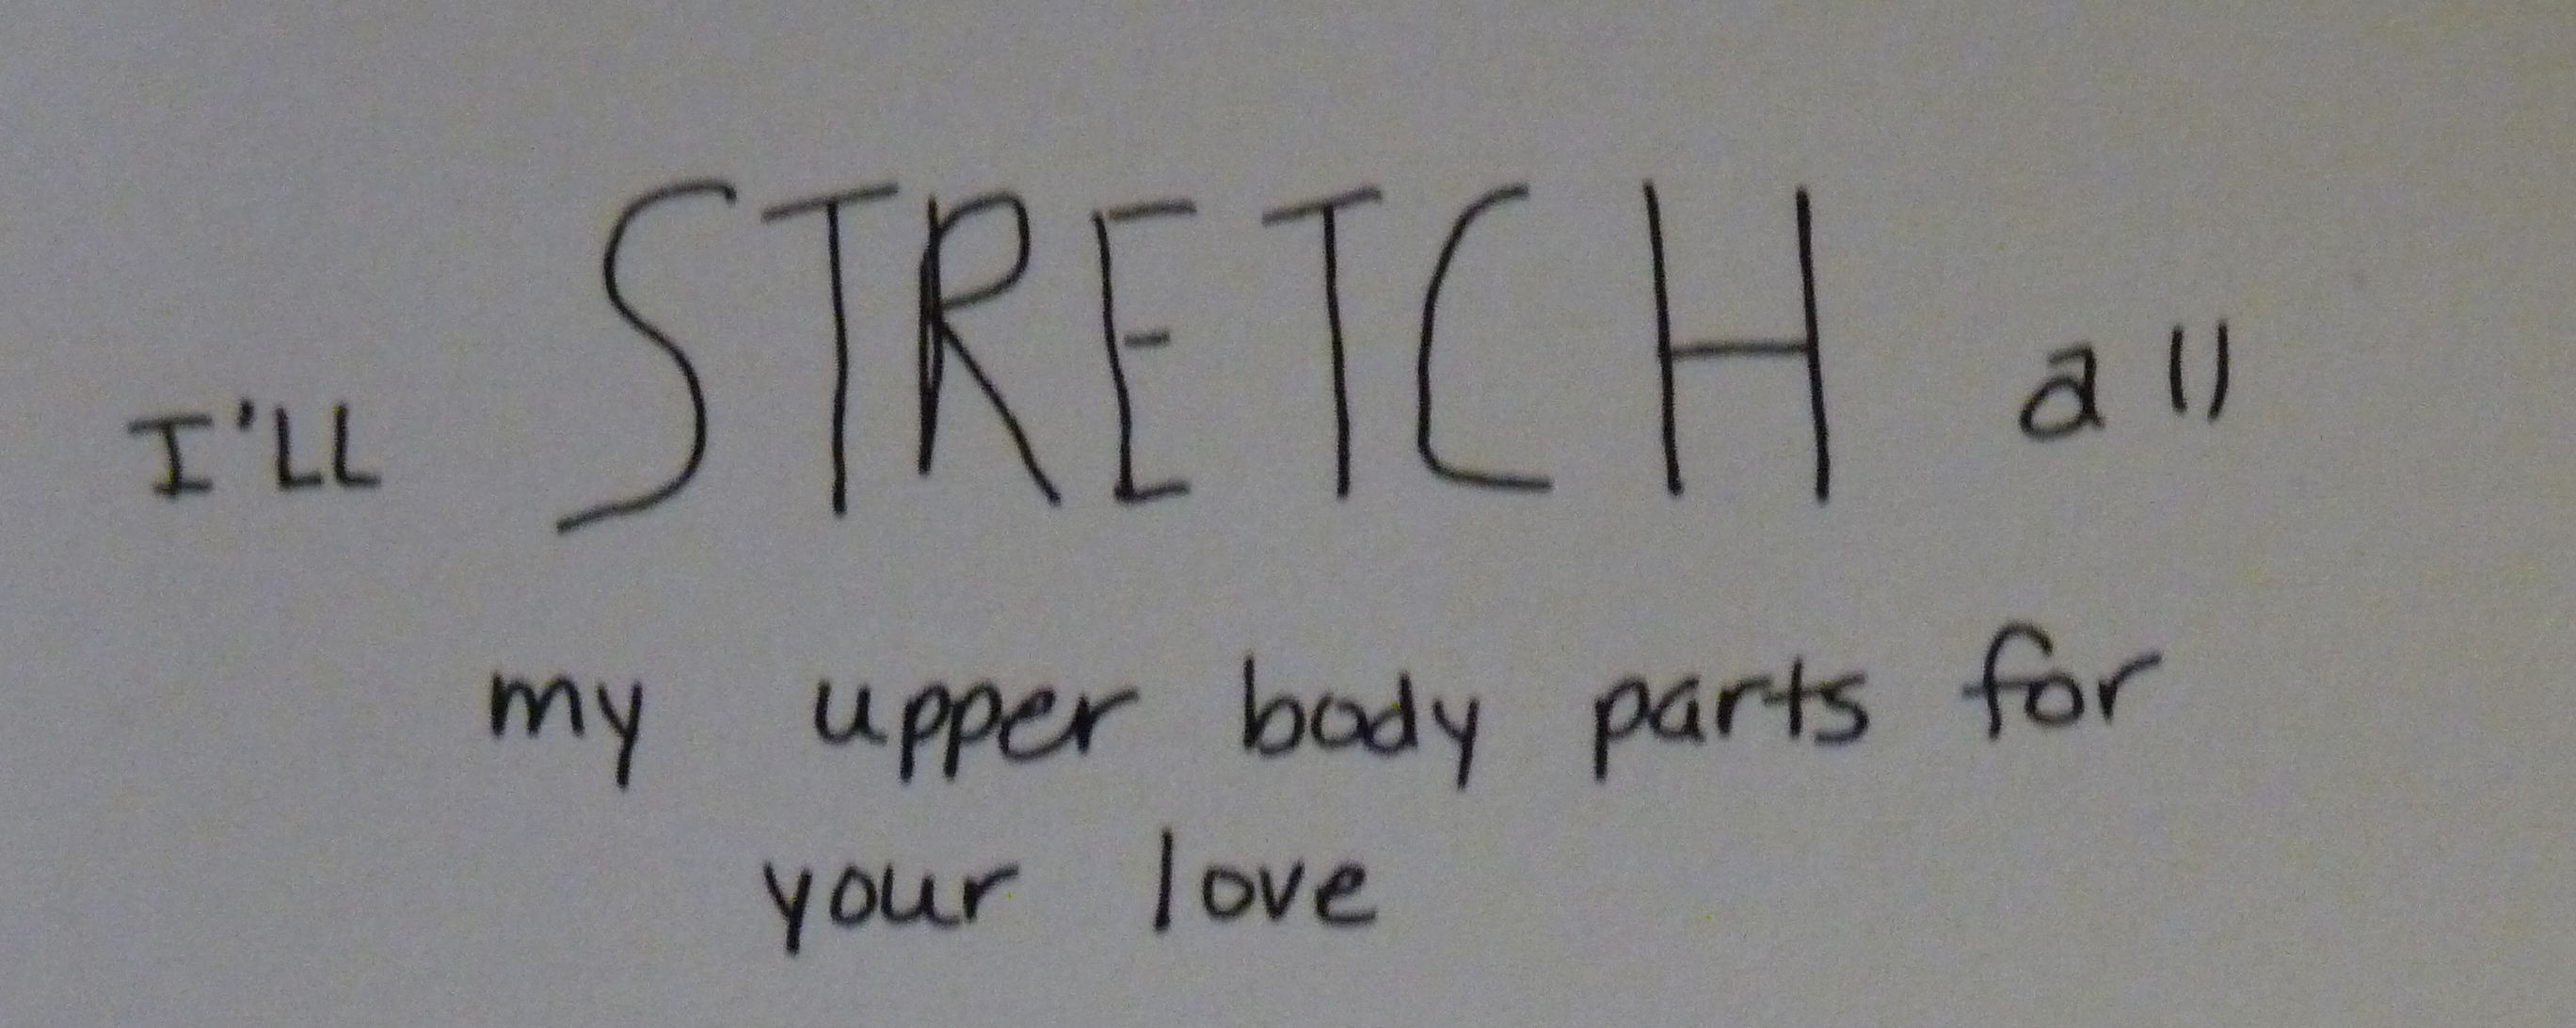 I'LL STRETCH all
my upper body parts for
your love